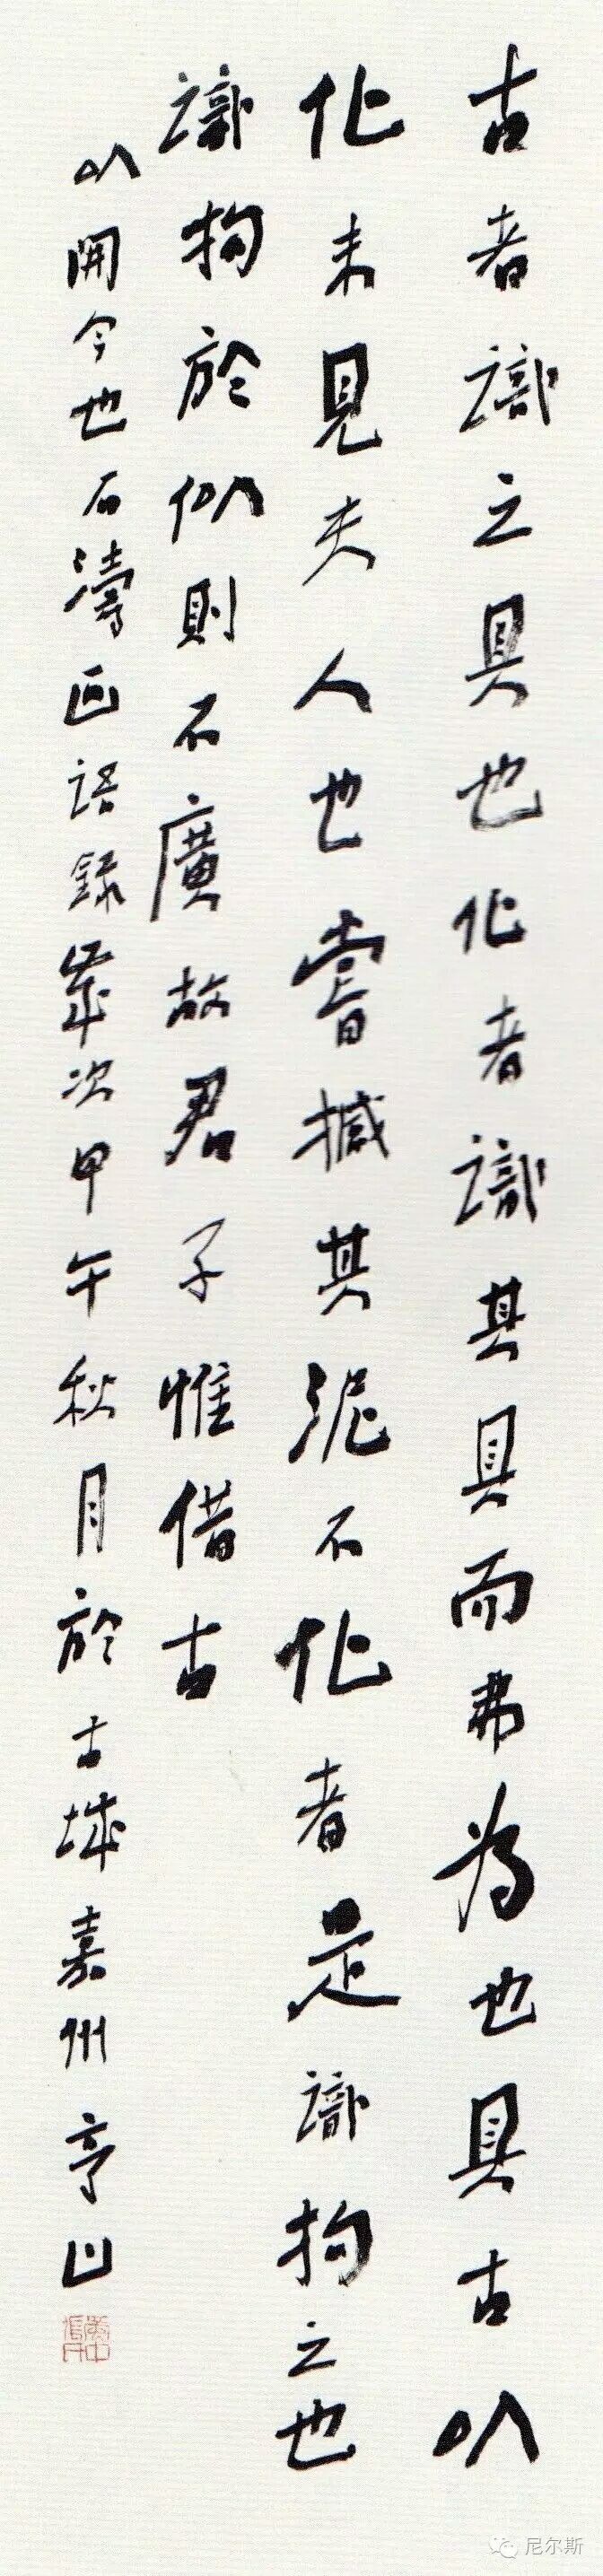 古者識之具也化者識其具而弗為也具古以
化未見夫人也嘗憾其泥不化者是識拘之也
識拘於似則不廣故君子惟借古
以開今也石濤画語錄歲次甲午秋月於古城嘉州亨山
尼尔斯